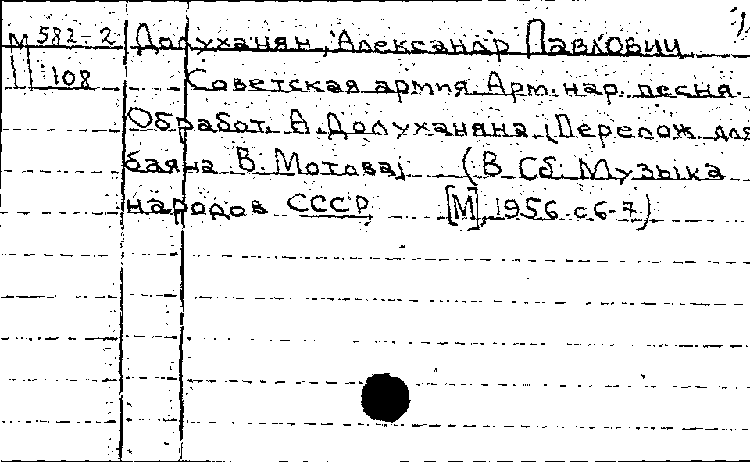 М 582-2 Долуханян, Александр Павлович
108 Советская армия. Арм. нар. песня.
Обработ. А. Долуханяна, (Перелож для
баяна В. Мотова) (В Сб. Музыка
народов СССР [М], 1956 с 6-7)